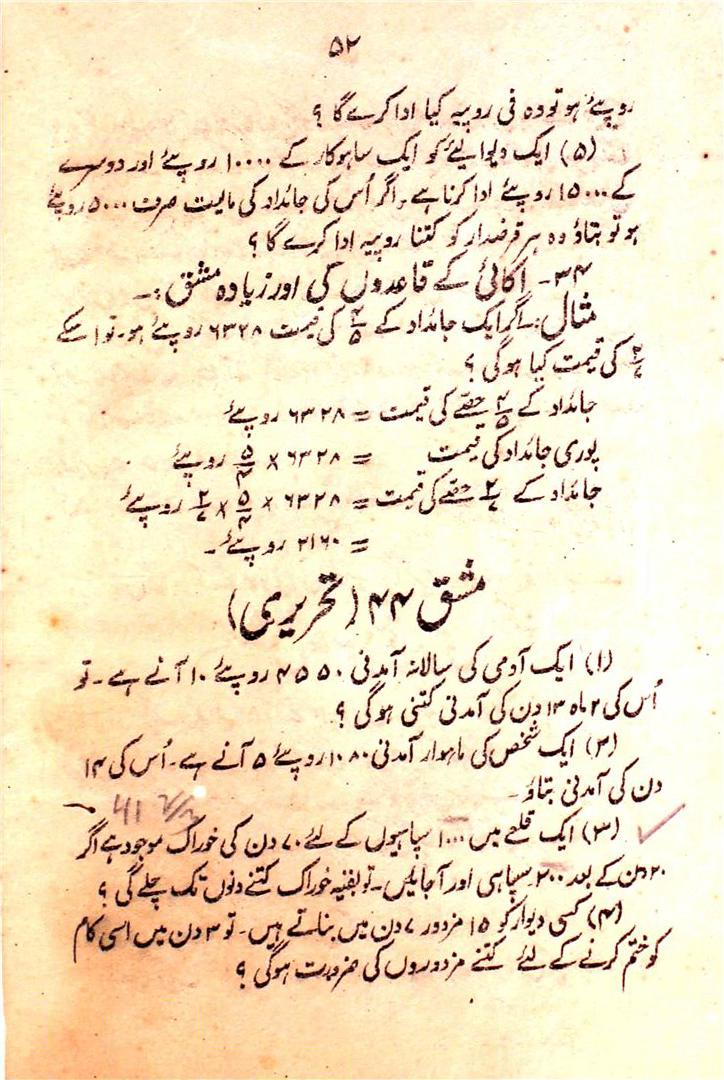 ۵۲
روپئے ہو تو وہ فی روپیہ کیا ادا کرے گا ؟
(۵) ایک دیوالیئے کو ایک ساہوکار کے ۱۰۰۰۰ روپئے اور دوسرے
کے ۱۵۰۰۰ روپئے ادا کرنا ہے۔ اگر اُس کی جائداد کی مالیت صرف ۵۰۰۰ روپئے
ہو تو بتاؤ وہ ہر قرضدار کو کتنا روپیہ ادا کرے گا ؟
۳۴۔ اکائی کے قاعدوں کی اور زیادہ مشق :۔
مثال :۔ اگر ایک جائداد کے ۴/۵ کی قیمت ۶۳۲۸ روپئے ہو۔ تو اسکے
کی قیمت کیا ہوگی ؟
جائداد کے ۴/۵ حصّے کی قیمت = ۶۳۲۸ روپئے
پوری جائداد کی قیمت = ۶۳۲۸ × ۵/۴ روپئے
جائداد کے حصّے کی قیمت = ۶۳۲۸ × ۵/۴ × روپئے
= ۲۱۶۰ روپئے۔
مشق ۴۴ (تحریری)
(۱) ایک آدمی کی سالانہ آمدنی ۴۵۵۰ روپئے ۱۰ آنے ہے۔ تو
اُس کی ۲ ماہ ۱۳ دن کی آمدنی کتنی ہوگی ؟
(۲) ایک شخص کی ماہوار آمدنی ۱۰۸۰ روپئے ۵ آنے ہے۔ اُس کی ۱۴
دن کی آمدنی بتاؤ۔
41 2/3
(۳) ایک قلعے میں ۱۰۰۰ سپاہیوں کے لئے ۷۰ دن کی خوراک موجود ہے اگر
۲۰ دن کے بعد ۲۰۰ سپاہی اور آجائیں۔ تو بقیہ خوراک کتنے دنوں تک چلے گی ؟
(۴) کسی دیوار کو ۱۵ مزدور ۷ دن میں بناتے ہیں۔ تو ۳ دن میں اسی کام
کو ختم کرنے کے لئے کتنے مزدوروں کی ضرورت ہوگی ؟